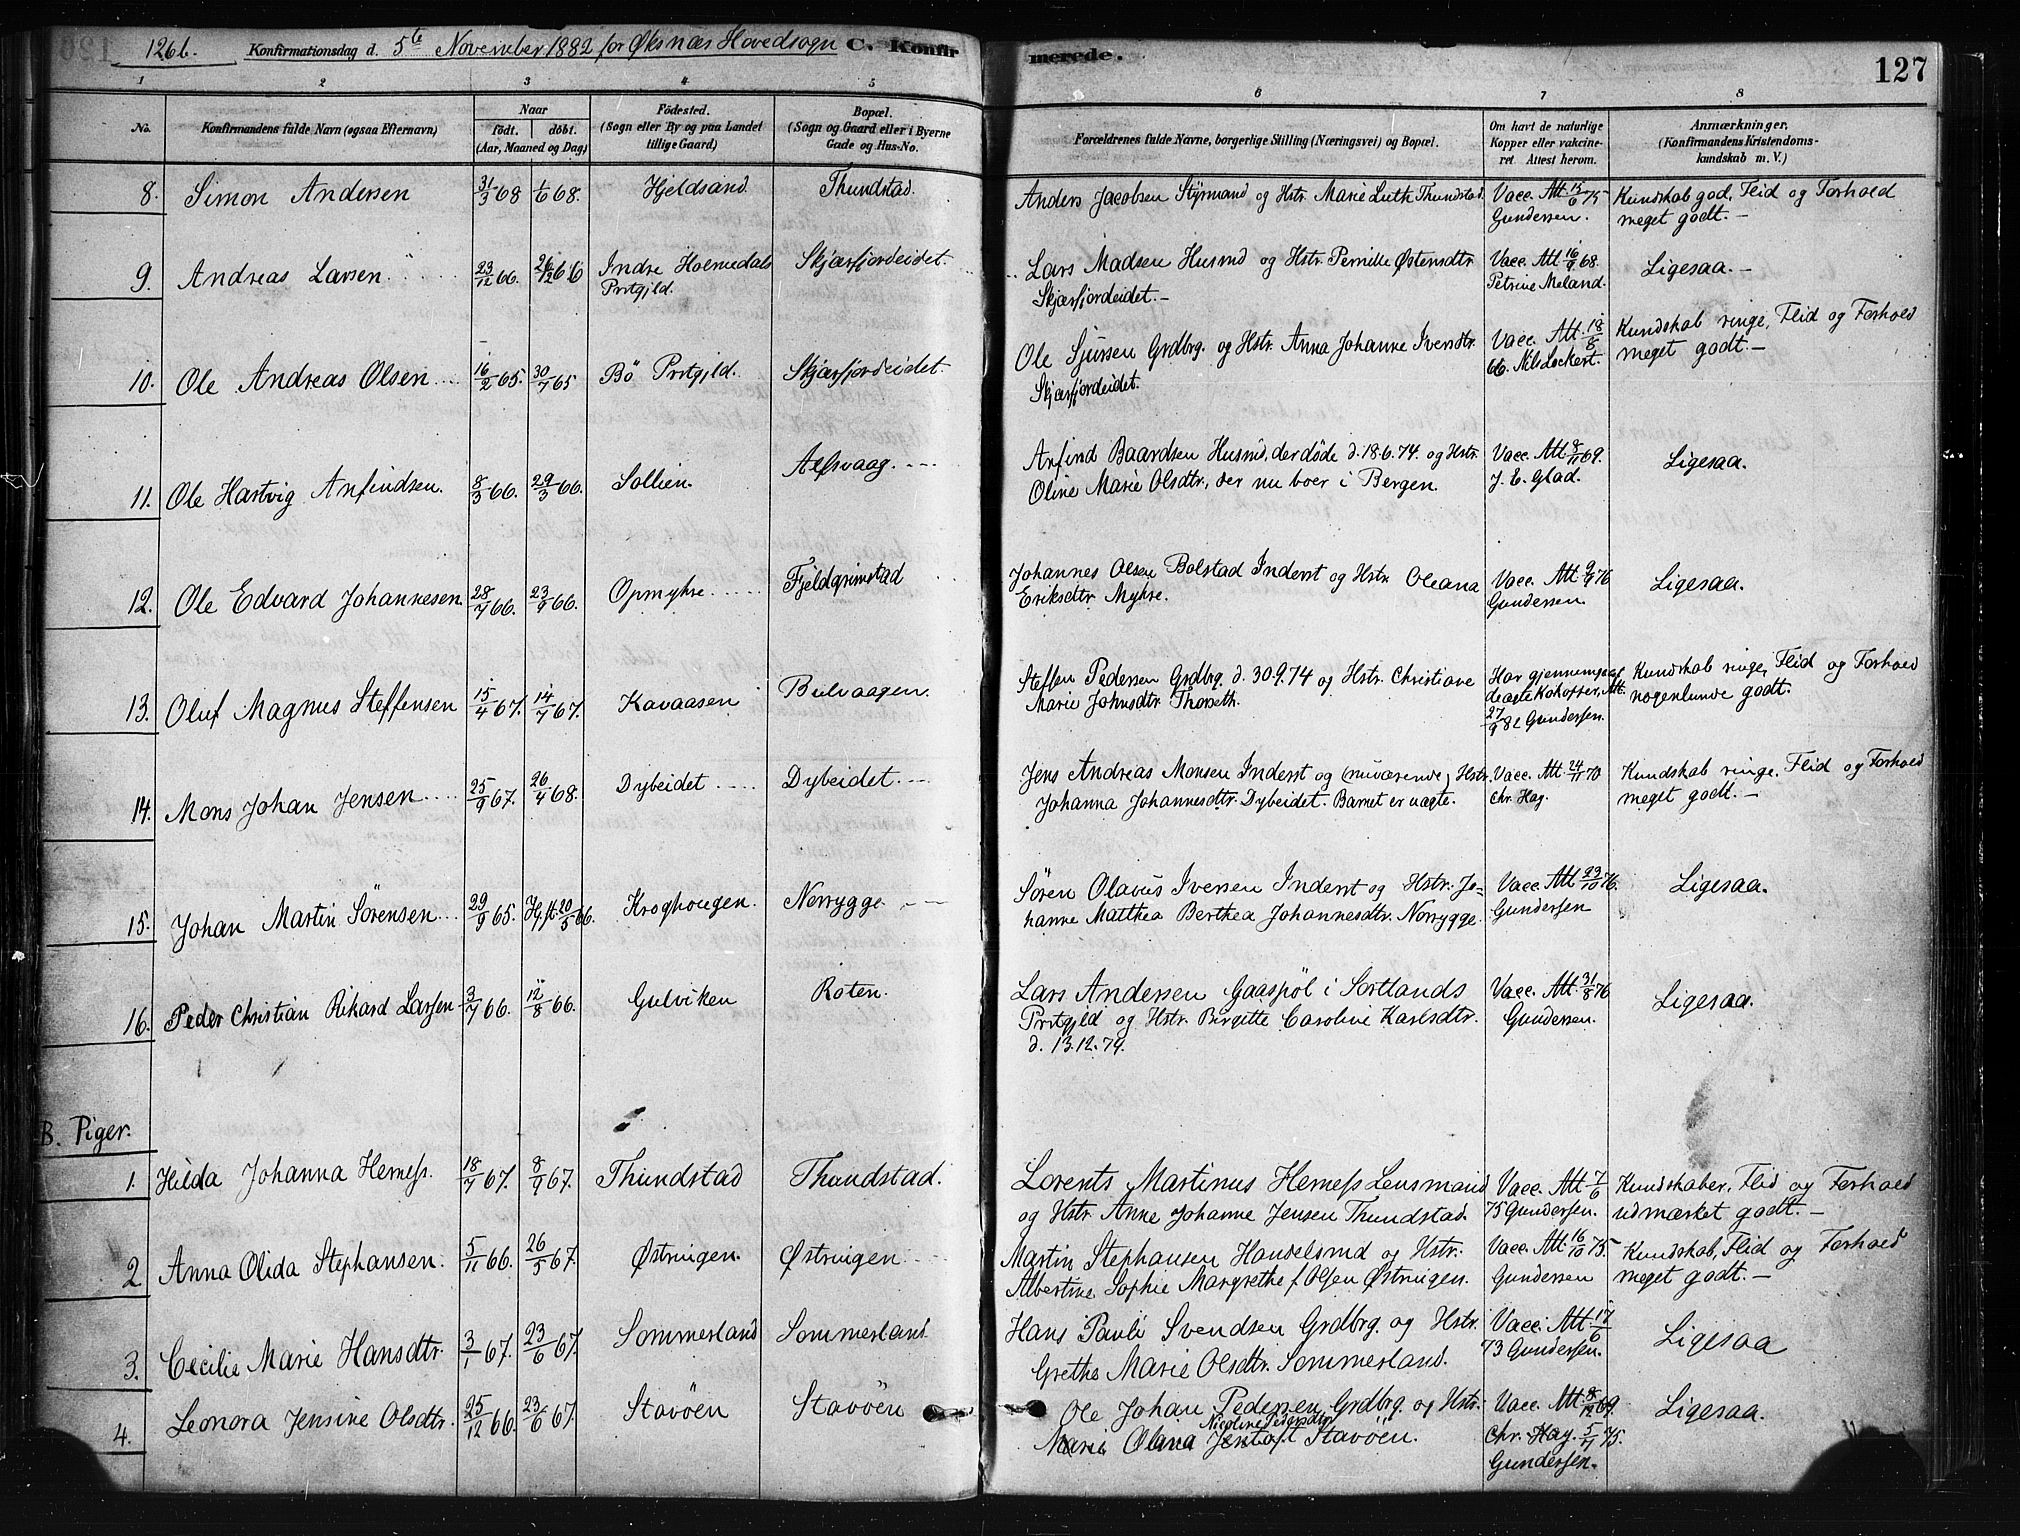 126b. Konfirmationsdag d. 5te November 1882 for Øksnæs Hovedsogn C. Konfir
merede. 127
1 2 3 4 5
6 7 8
No. Konfirmandens fulde Navn (ogsaa Efternavn) Naar født. døbt. (Aar, Maaned og Dag) Födested. (Sogn eller By og paa Landet tillige Gaard) Bopæl. (Sogn og Gaard eller i Byerne Gade og Hus-No.
Forældrenes fulde Navne, borgerlige Stilling (Næringsvei) og Bopæl. Om havt de naturlige Kopper eller vakcineret Attest herom. Anmærkninger, (Konfirmandens Kristendomskundskab m. V.)
8. Simon Andersen 31/3 68 1/6 68. Hjeldsand Thundstad.
Anders Jacobsen Styrmand og Hstr. Marie Luth Thundstad. Vacc. Att 15/6 75 Kundskab god, Flid og Forhold
Gundersen. meget godt.—
9. Andreas Larsen 23/12 66. 26/12 66 Indre Holmedals Skjærfjordeidet.
Prstgjld.
Lars Madsen Husmd og Hstr. Pernille Østensdtr Vacc. Att 16/9 68. Ligesaa.—
Skjærfjordeidet.— Petrine Meland.
10. Ole Andreas Olsen 16/2 65. 30/7 65 Bö Prstgjld. Skjærfjordeidet.
Ole Sjursen Grdbrg. og Hstr. Anna Johanne Iversdtr. Vacc. Att. 18/8 Kundskab ringe, Flid og Forhold
Skjærfjordeidet. 66. Nils Lockert. meget godt.—
11. Ole Hartvig Anfindsen. 8/3 66. 29/3 66. Sollien. Alfsvaag.
Anfind Baardsen Husmd, der døde d. 18.6.74. og Hstr. Vacc. Att 8/11 69. Ligesaa.
Oline Marie Olsdtr, der nu boer i Bergen. J. E. Glad.
12. Ole Edvard Johannesen. 28/7 66. 23/9 66. Opmyhre Fjeldgrimstad
Johannes Olsen Bolstad Inderst og Hstr. Oleana Vacc. Att 9/9 76 Ligesaa.
Eriksdtr. Myhre. Gundersen.
13. Oluf Magnus Steffensen 15/4 67. 14/7 67. Kavaasen Bulvaagen.
Steffen Pedersen Grdbrg. d. 30.9.74 og Hstr. Christiane Har gjennemgaaet Kundskab ringe, Flid og Forhold
Marie Johnsdtr. Thorseth. de ægte Kokopper, Att. nogenlunde godt.
27/9 82 Gundersen.
14. Mons Johan Jensen 25/9 67. 26/4 68. Dybeidet Dybeidet
Jens Andreas Monsen Inderst og (nuværende) Hstr. Vacc. Att. 24/11 70 Kundskab ringe, Flid og Forhold
Johanna Johannesdtr. Dybeidet. Barnet er uægte. Chr. Hag. meget godt.—
15. Johan Martin Sörensen 29/9 65. Hj. st. 20/5 66. Kroghougen. Norrygge
Søren Olavus Iversen Inderst og Hstr. Jo- Vacc. Att 23/10 76. Ligesaa.
hanne Matthea Berthea Johannesdtr. Norrygge. Gundersen
16. Peder Christian Rikard Larsen 3/7 66. 12/8 66. Gulviken Roten.
Lars Andersen Gaaspöl i Sortlands Vacc. Att 31/8 76 Ligesaa.
Prstgjld og Hstr. Birgitte Caroline Karlsdtr. Gundersen.
d. 13.12.74.
B. Piger.
1. Hilda Johanna Herness. 18/7 67. 8/9 67. Thundstad Thundstad.
Lorents Martinus Herness Lensmand Vacc. Att 7/6 Kundskaber, Flid og Forhold
og Hstr. Anne Johanne Jensen Thundstad. 75 Gundersen. udmærket godt.—
2. Anna Olida Stephansen. 5/11 66. 26/5 67. Østringen. Østringen
Martin Stephansen Handelsmd og Hstr. Vacc. Att. 16/10 75. Kundskab, Flid og Forhold
Albertine Sophie Margrethe f. Olsen Østringen. Gundersen meget godt.—
3. Cecilie Marie Hansdtr. 3/1 67. 23/6 67. Sommerland Sommerland
Hans Pauli Svendsen Grdbrg. og Hstr. Vacc. Att 17/6 Ligesaa
Grethe Marie Olsdtr. Sommerland. 73 Gundersen.
4. Leonora Jensine Olsdtr. 25/12 66. 23/6 67. Stavöen Stavöen
Ole Johan Pedersen Grdbrg. og Hstr. Vacc. Att 8/12 69. Ligesaa.
Nicoline Pedersdtr
Marie Olava Jentoft Stavöen. Chr. Hag. 5/7 75.
Gundersen.